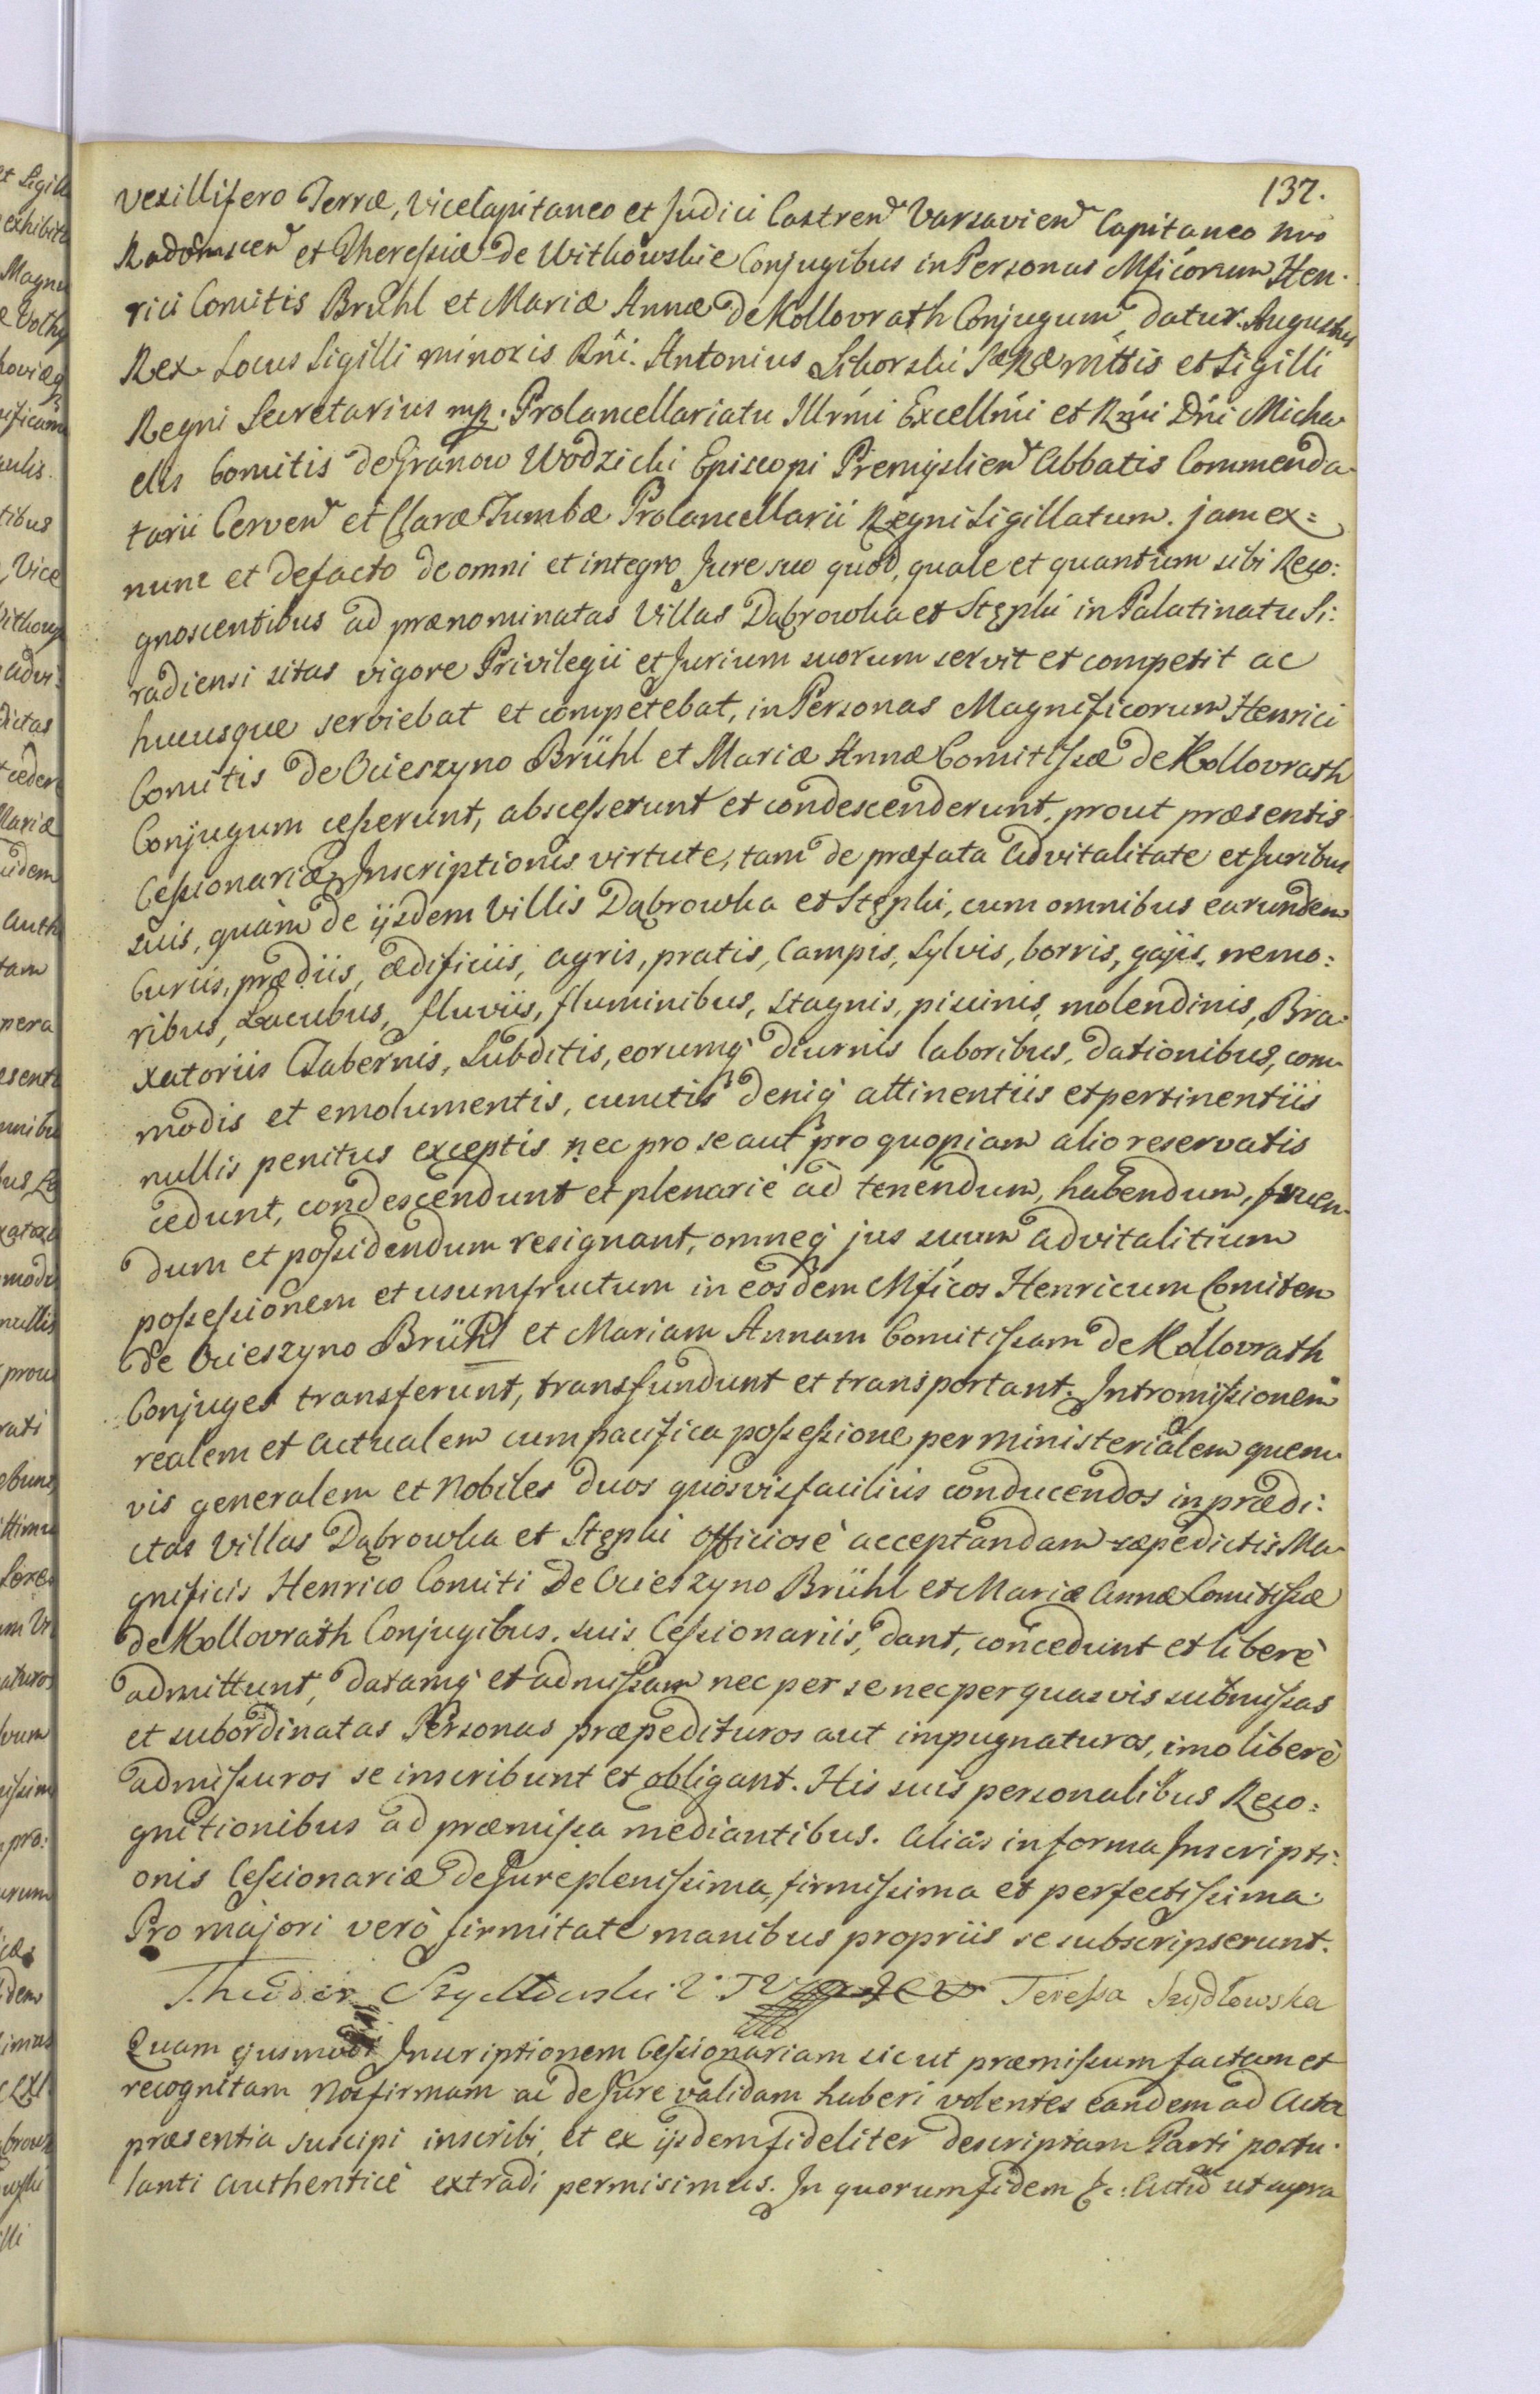 137.
Vexillifero Terræ, Vicecapitaneo et Judici Castren Varsavien Capitaneo nro
Radomscen et Theressiæ de Witkowskie Conjugibus in Personas Mficorum Hen-
rici Comitis Brühl et Mariæ Annæ de Kollovrath Conjugum, datur. Augustus
Rex. Locus Sigilli minoris Rñi. Antonius Sikorski Sæ Ræ Mttis et Sigilli
Regni Secretarius mp. Procancellariatu Illrmi Excellmi et Rmi Dñi Micha-
elis Comitis de Granow Wodzicki Episcopi Premyslien Abbatis Commenda-
tarii Cerven et Claræ Tumbæ Procancellarii Regni Sigillatum. jam ex=
nunc et defacto de omni et integro Jure suo quod, quale et quantum sibi Reco:
gnoscentibus ad prænominatas Villas Dąbrowka et Stęplu in Palatinatu Si:
radiensi sitas vigore Privilegii et Jurium suorum servit et competit ac
hucusque serviebat et competebat, in Personas Magnificorum Henrici
Comitis de Ocieszyno Brühl et Mariæ Annæ Comitissæ de Kollovrath
Conjugum cesserunt, abscesserunt et condescenderunt, prout præsentis
Cessionariæ Inscriptionis virtute, tam de præfata advitalitate et Juribus
suis, quàm de ijsdem Villis Dąbrowka et Stęplu, cum omnibus earundem
Curiis, prædiis, ædificiis, agris, pratis, Campis, Sylvis, borris, gajis, nemo:
ribus, Lacubus, fluviis, fluminibus, stagnis, piscinis, molendinis, Bra-
xatoriis Tabernis, Subditis, eorumq diurnis laboribus, dationibus, com-
modis et emolumentis, cunctis deniq attinentiis et pertinentiis
nullis penitus exceptis nec pro se aut pro quopiam alio reservatis
cedunt, condescendunt et plenariè ad tenendum, habendum, fruen-
dum et possidendum resignant, omneq jus suum advitalitium
possessionem et usumfructum in eosdem Mficos Henricum Comitem
de Ocieszyno Brühl et Mariam Annam Comitissam de Kollovrath
Conjuges transferunt, transfundunt et transportant. Intromissionem
realem et actualem cum pacifica possessione per ministerialem quem-
vis generalem et Nobiles duos quosvis facilius conducendos in prædi:
ctas Villas Dąbrowka et Stęplu officiosè acceptandam sæpedictis Ma-
gnificis Henrico Comiti de Ocieszyno Brühl et Mariæ Annæ Comitissæ
de Kollovrath Conjugibus. suis Cessionariis, dant, concedunt et liberè
admittunt, datamq et admissam nec per se nec per quasvis submissas
et subordinatas Personas præpedituros aut impugnaturos, imo liberè
admissuros se inscribunt et obligant. His suis personalibus Reco=
gnitionibus ad præmissa mediantibus. alias in forma Inscripti:
onis Cessionariæ de Jure plenissima, firmissima et perfectissima.
Pro majori verò firmitate manibus propriis se subscripserunt.
Theodor Szydłowski Teressa Szydłowska
Quam ejusmodi Inscriptionem Cessionariam sicut præmissum factam et
recognitam Nos firmam ac de Jure validam haberi volentes eandem ad Acta
præsentia suscipi inscribi, et ex ijsdem fideliter descriptam Parti postu-
lanti authenticè extradi permisimus. In quorum fidem &c: Actu ut supra